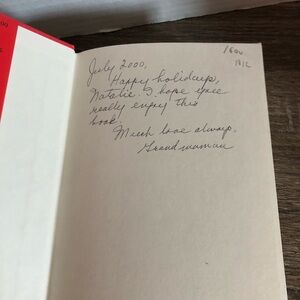 July 2000,
Happy holidays,
Natalie. I hope you
really enjoy this
book.
Much love always,
Grandmaman